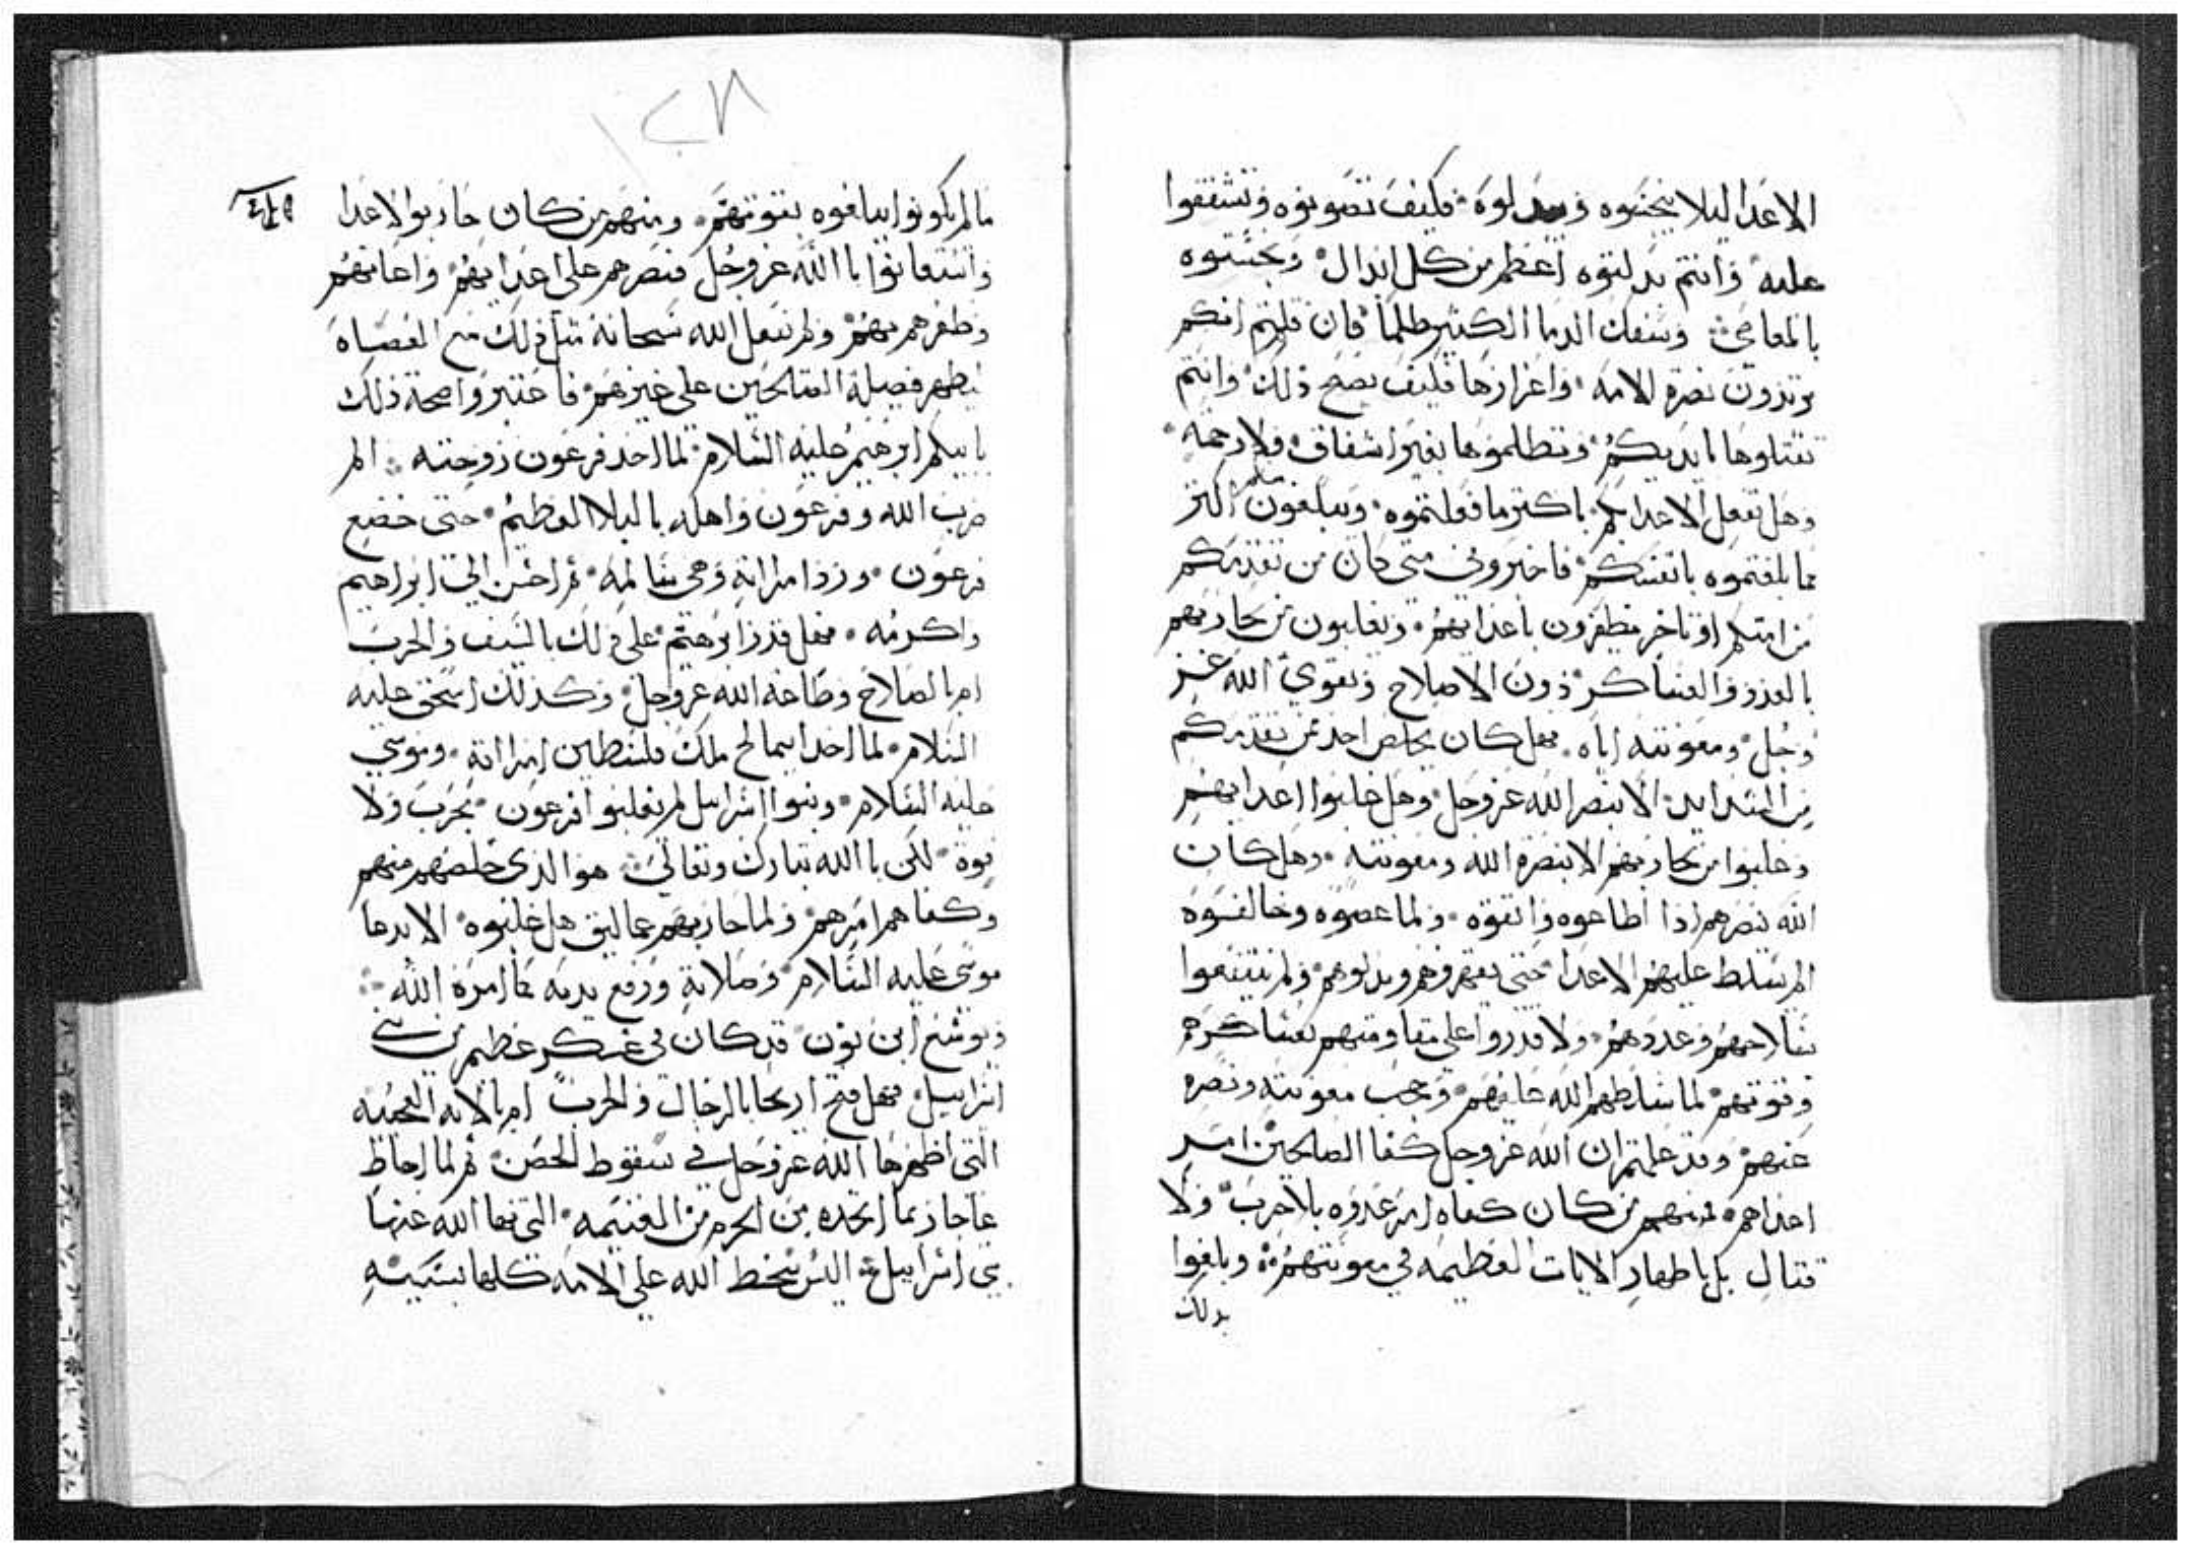 الاعدا ليلا ينجسوه ويبدلوه فكيف تصونوه وتشفقوا
عليه وانتم بدلتوه اعظم من كل ابدال ونجستوه
بالمعاصي وسفك الدما الكثير ظلما فان قلتم انكم
تريدون نصرة الامه واعزازها فكيف يصح ذلك وانتم
تقتلوها بايديكم وتظلموها بغير اشفاق ولا رحمة
وهل تفعل الاعدا بكم باكثر ما فعلتموه ويبلغون منكم اكثر
مما بلغتموه بانفسكم فاخبروني متى كان من تقدمكم
من امتكم او تاخر يظفرون باعدايهم ويغلبون من يحاربهم
بالعدد والعساكر دون الاصلاح وتقوى الله عز
وجل ومعونته اياه فهل كان يخلص احد ممن تقدمكم
من الشدايد الا بنصر الله عز وجل وهل غلبوا اعدايهم
وغلبوا من يحاربهم الا بنصرة الله ومعونته وهل كان
الله ينصرهم اذا اطاعوه واتقوه ولما عصوه وخالفوه
الم يسلط عليهم الاعدا حتى يقهروهم ويذلوهم ولم ينتفعوا
بسلاحهم وعددهم ولا قدروا على مقاومتهم بعساكرهم
وقوتهم لما سلطهم الله عليهم وحجب معونته ونصره
عنهم وقد علمتم ان الله عز وجل كفا الصالحين امر
اعداهم فمنهم من كان كفاه امر عدوه بلا حرب ولا
قتال بل باظهار الايات العظيمه في معونتهم وبلغوا
بذلك
١٢٨
ما لم يكونوا يبلغوه بقوتهم ومنهم من كان حاربوا الاعدا
واستعانوا بالله عز وجل فنصرهم على اعدايهم واعانهم
وظفرهم بهم ولم يفعل الله سبحانه مثل ذلك مع العصاه
ليظهر فضيلة الصالحين على غيرهم فاعتبروا صحة ذلك
بابيكم ابرهيم عليه السلام لما اخذ فرعون زوجته الم
ضرب الله وفرعون واهله بالبلا العظيم حتى خضع
فرعون ورد امراته وهي سالمه ثم احسن الى ابراهيم
واكرمه فهل قدر ابرهيم على ذلك بالسيف والحرب
ام بالصلاح وطاعة الله عز وجل وكذلك اسحق عليه
السلام لما اخذ ابيمالخ ملك فلسطين امراته وموسى
عليه السلام وبنوا اسراييل لم يغلبوا فرعون بحرب ولا
قوة لكن بالله تبارك وتعالى هو الذي خلصهم منهم
وكفاهم امرهم ولما حاربهم عماليق هل غلبوه الا بدعا
موسى عليه السلام وصلاته ورفع يديه كما امره الله
ويوشع ابن نون قد كان في عسكر عظيم من بني
اسراييل فهل فتح اريحا بالرجال والحرب ام بالايه العجيبه
التى اظهرها الله عز وجل في سقوط الحصن ثم لما اخطا
عاجار بما اخذه من الحرم من الغنيمه التى نها الله عنها
بني اسراييل اليس سخط الله على الامه كلها بسببه